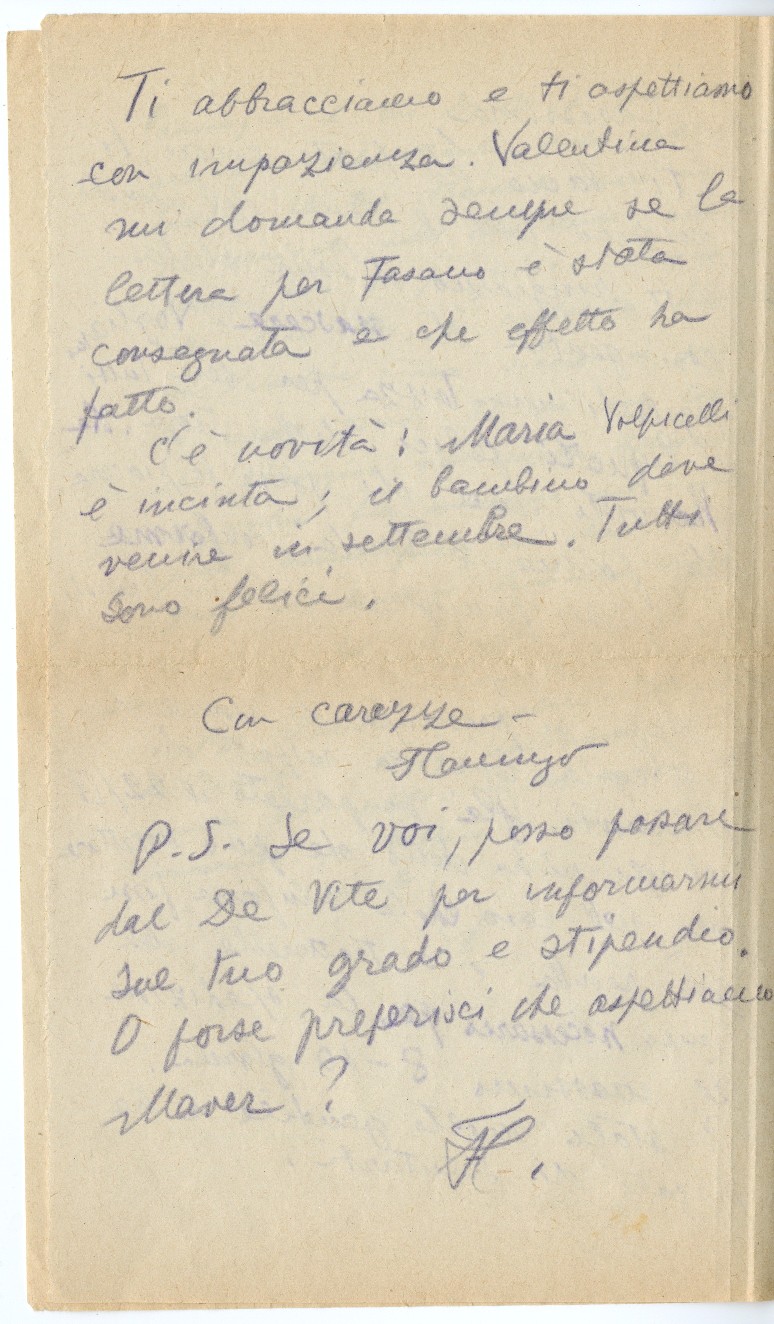 Ti abbracciamo e ti aspettiamo
con impazienza. Valentina
mi domanda sempre se la
lettera per Fasano è stata
consegnata e che effetto ha
fatto.
C'è novità: Maria Volpicelli
è incinta; il bambino deve
venire in settembre. Tutti
sono felici.
Con carezze –
P.S. Se voi, posso passare
dal De Vite per informarmi
sul tuo grado e stipendio.
O forse preferisci che aspettiamo
Maver?